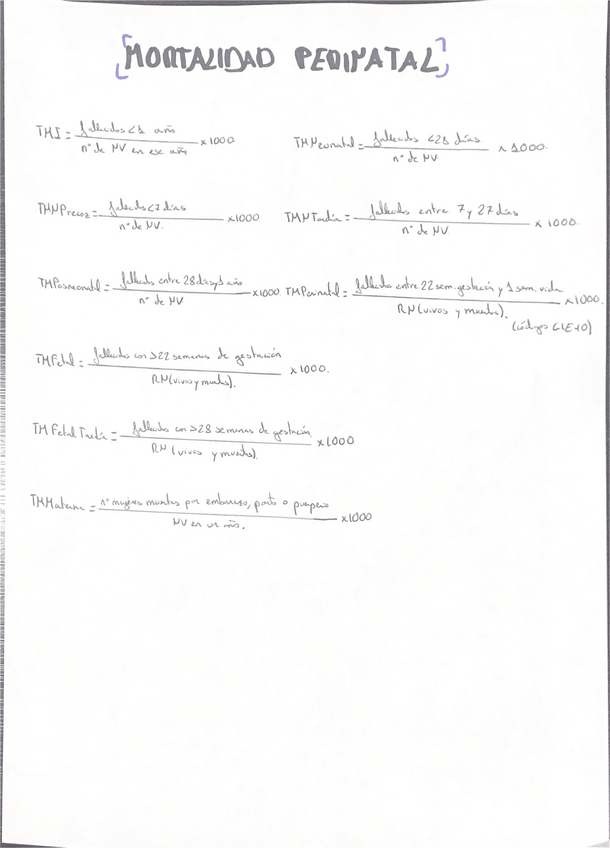 [MORTALIDAD PERINATAL]
TMI = fallecidos < 1 año / nº de NV en ese año x 1000
TMNeonatal = fallecidos < 28 días / nº de NV x 1000.
TMNPrecoz = fallecidos < 7 días / nº de NV. x 1000
TMNTardía = fallecidos entre 7 y 27 días / nº de NV. x 1000.
TMPosneonatal = fallecidos entre 28 días y 1 año / nº de NV x 1000.
TMPerinatal = fallecidos entre 22 sem. gestación y 1 sem. vida / RN (vivos y muertos). x 1000.
(código CIE10)
TMFetal = fallecidos con >22 semanas de gestación / RN (vivos y muertos). x 1000.
TM Fetal Tardía = fallecidos con >28 semanas de gestación / RN (vivos y muertos). x 1000
TMMaterna = nº mujeres muertas por embarazo, parto o puerperio / NV en un año. x 1000